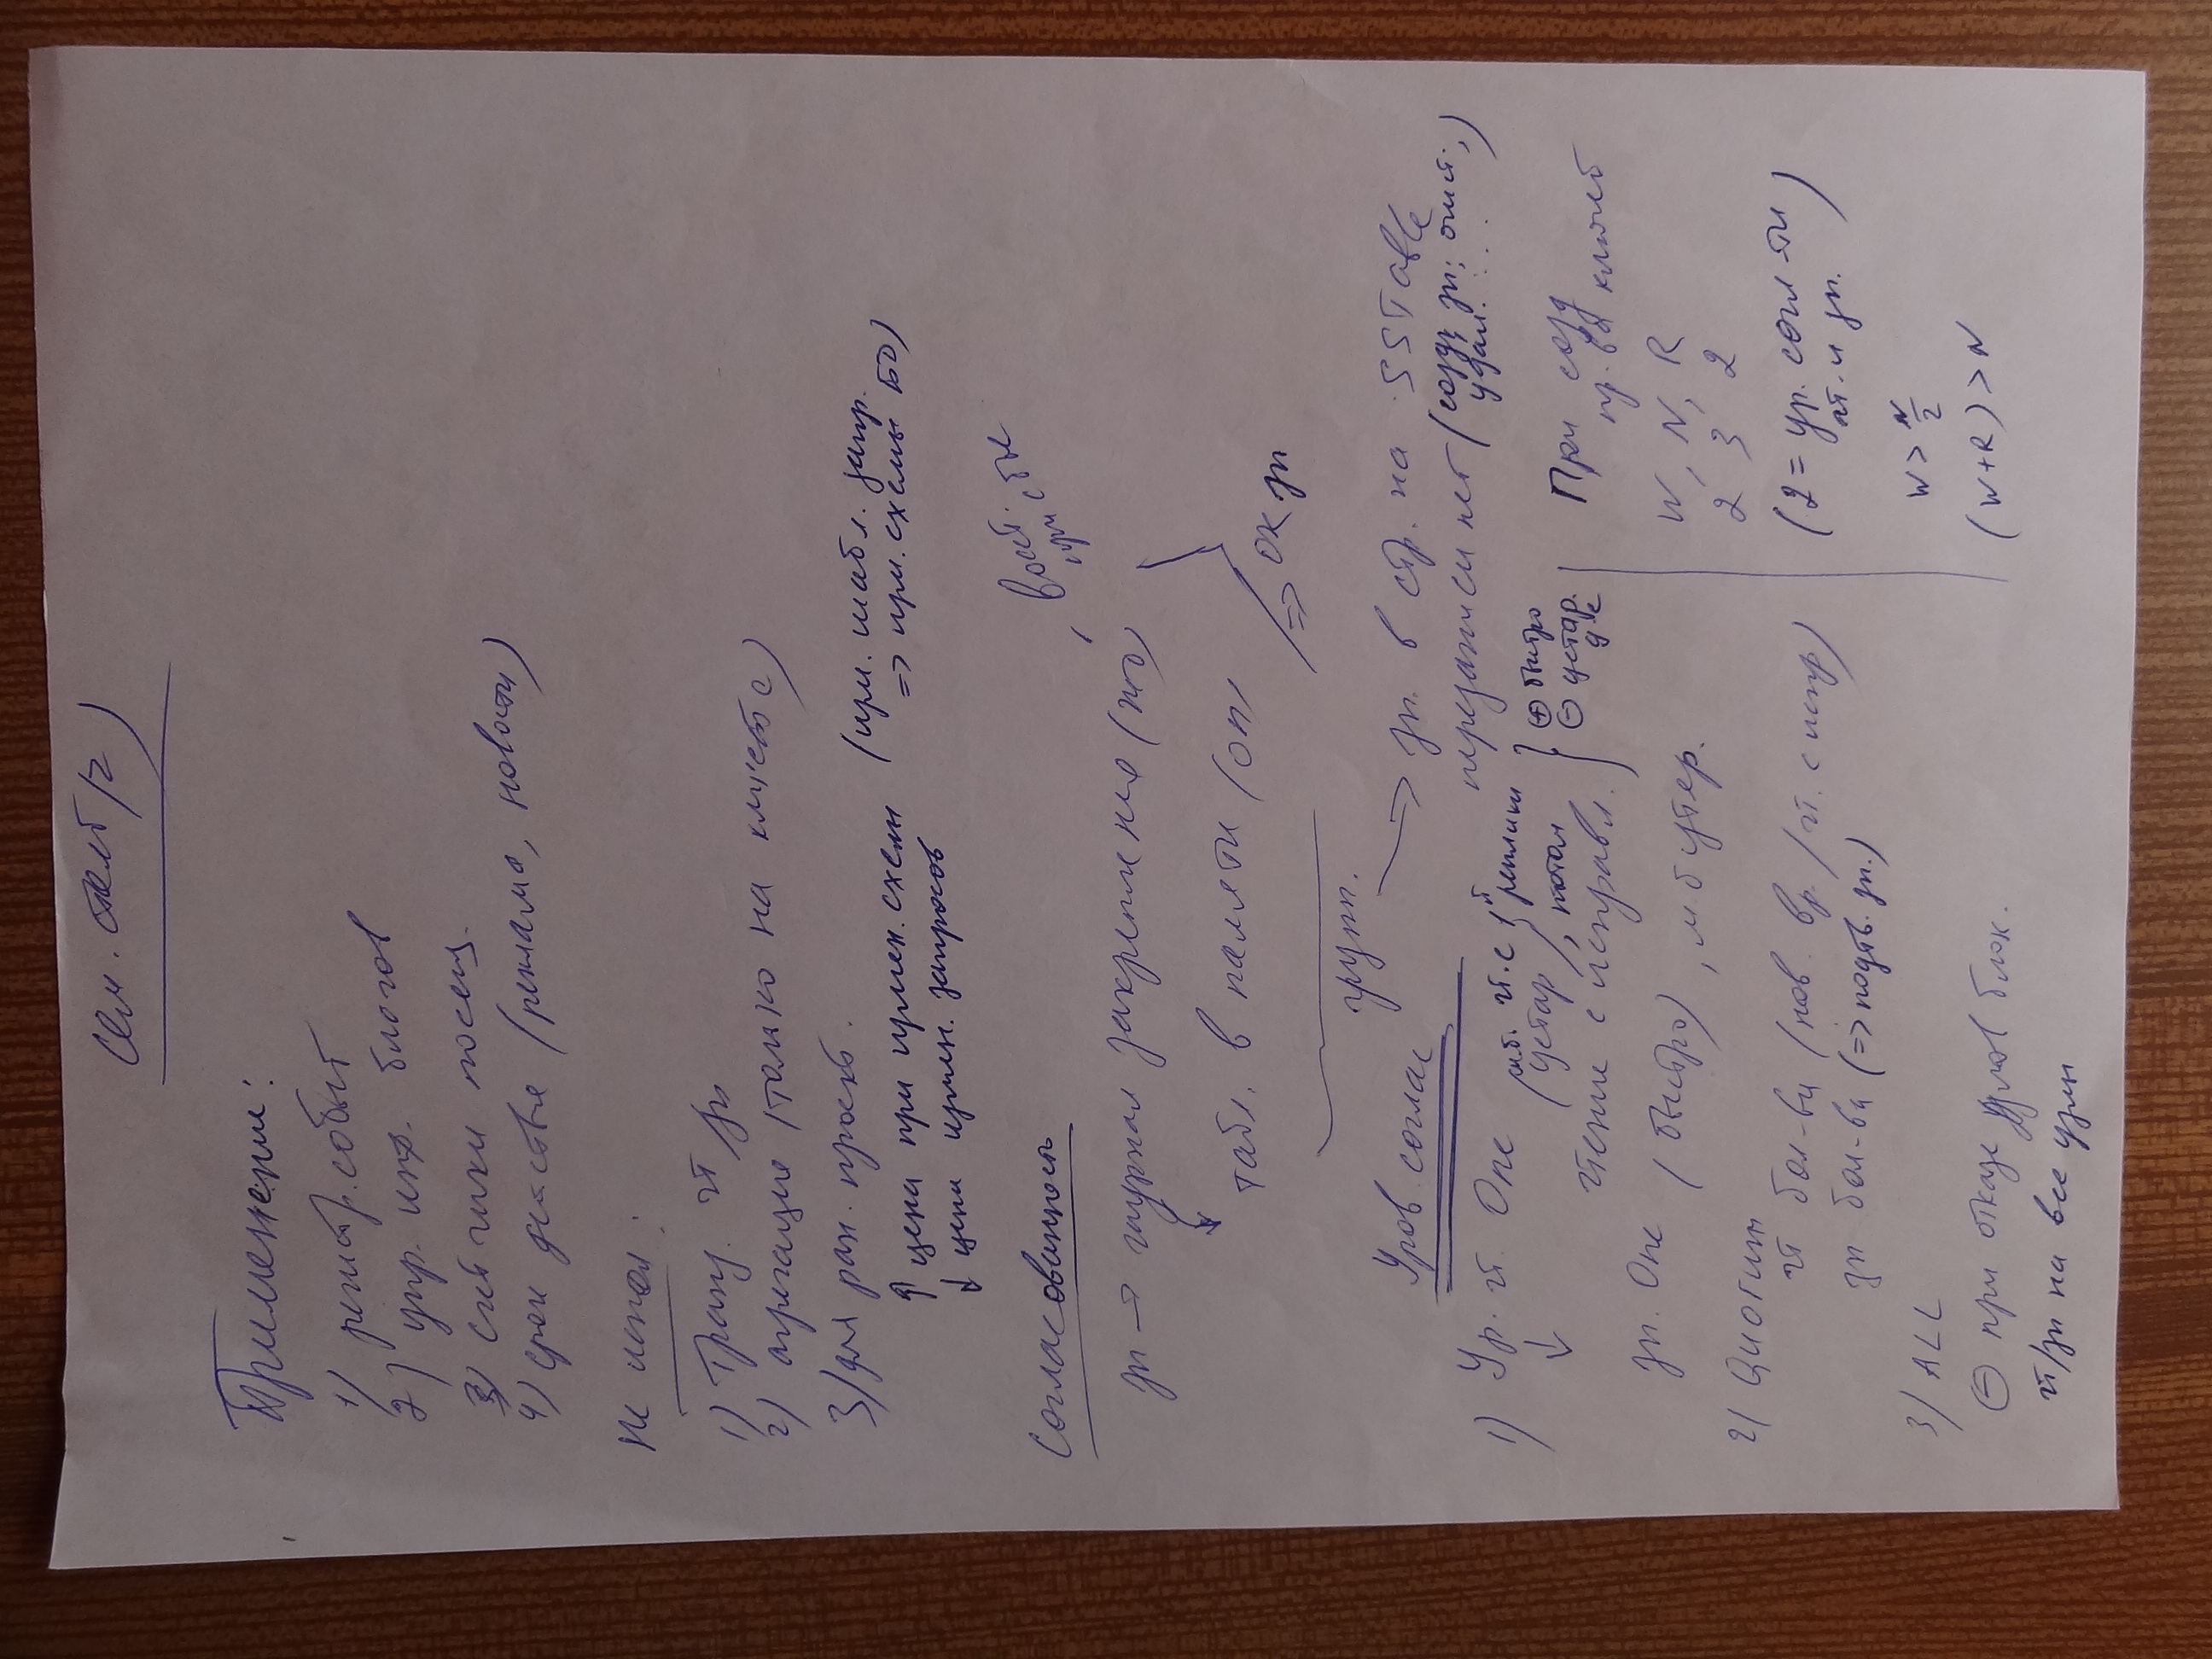 Сем. столб (2)
Применение:
1) регистр. событ
2) упр. инф. блогов
3) счётчики посещ.
4) срок действия (реклама, новости)
Не испол:
1) Транз. чт/зп
2) агрегация (только на клиенте)
3) для ран. проект.
↑ цена при измен. схемы (изм. шабл. запр.
↓ цена измен. запросов => изм. схемы БД)
Согласованность
зп → журнал закрепления (ЖД), восст.
при сбое
↓ табл. в памяти (ОП)
=> ОК зп
групп.
→ зп. в стр. на SSTable
перезаписи нет (создь зп; очист.;
удал. ...)
Уров. соглас
1) Ур. чт. One (м.б. чт. с 1й реплики
(устар), потом
чтение с исправл.
⊕ быстро
⊖ устар.
д-е
↓
зп. One (быстро), м.б утер.
2) Quorum
чт бол-ва (нов. вр. / чт. с испр)
зп бол-ва (=> подтв. зп.)
3) ALL
⊖ при отказе узлов блок.
чт/зп на все узлы
При созд
пр-ва ключей
W, N, R
2 3 2
(2 = ур. согл-ти
чт. и зп.)
W > N/2
(W+R) > N